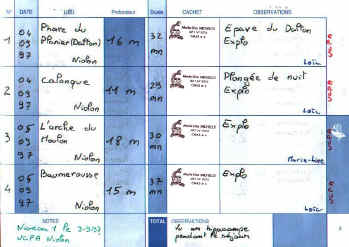 N° DATE LIEU Profondeur Durée CACHET OBSERVATIONS
1 04 09 97 Phare du Planier (Dalton) Niolon 16 m 32 mn Epave du Dalton Explo Loïc UCPA
2 04 09 97 Calanque Niolon 11 m 29 mn Plongée de nuit Explo Loïc UCPA
3 05 09 97 L'arche du Moulon Niolon 18 m 30 mn Explo Marie-Line UCPA
4 05 09 97 Baumerousse Niolon 15 m 37 mn Explo Loïc UCPA
NOTES
Niveau 1 le 3-9-97
UCPA Niolon
TOTAL OBSERVATIONS
Vu un hippocampe
pendant le séjour